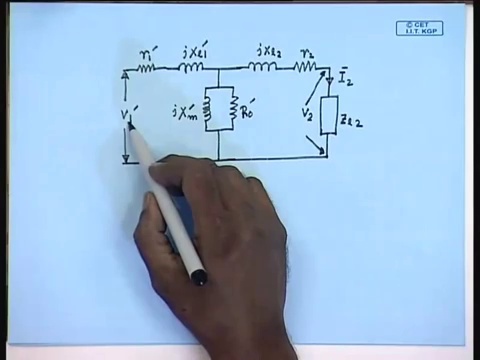 © CET
I.I.T. KGP
r₁′ jxℓ₁′ jxℓ₂ r₂
I̅₂
V₁′ jXm′ R₀′ V₂ Zℓ₂